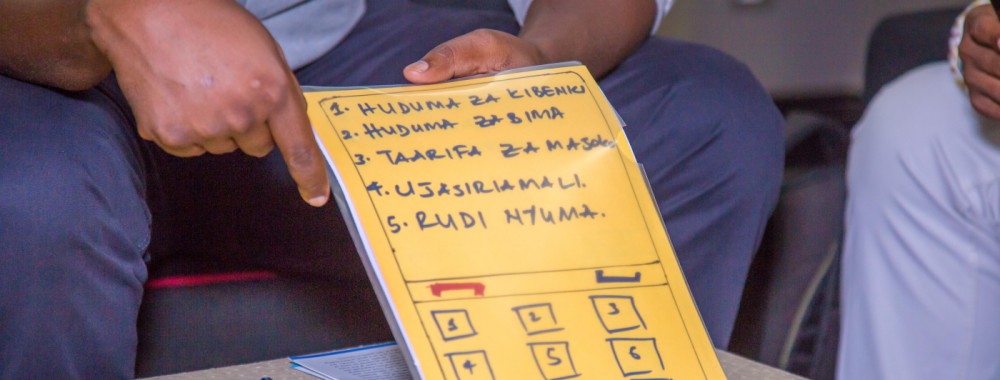 1. HUDUMA ZA KIBENKI
2. HUDUMA ZA BIMA
3. TAARIFA ZA MASOKO
4. UJASIRIAMALI.
5. RUDI NYUMA.
1 2 3
4 5 6